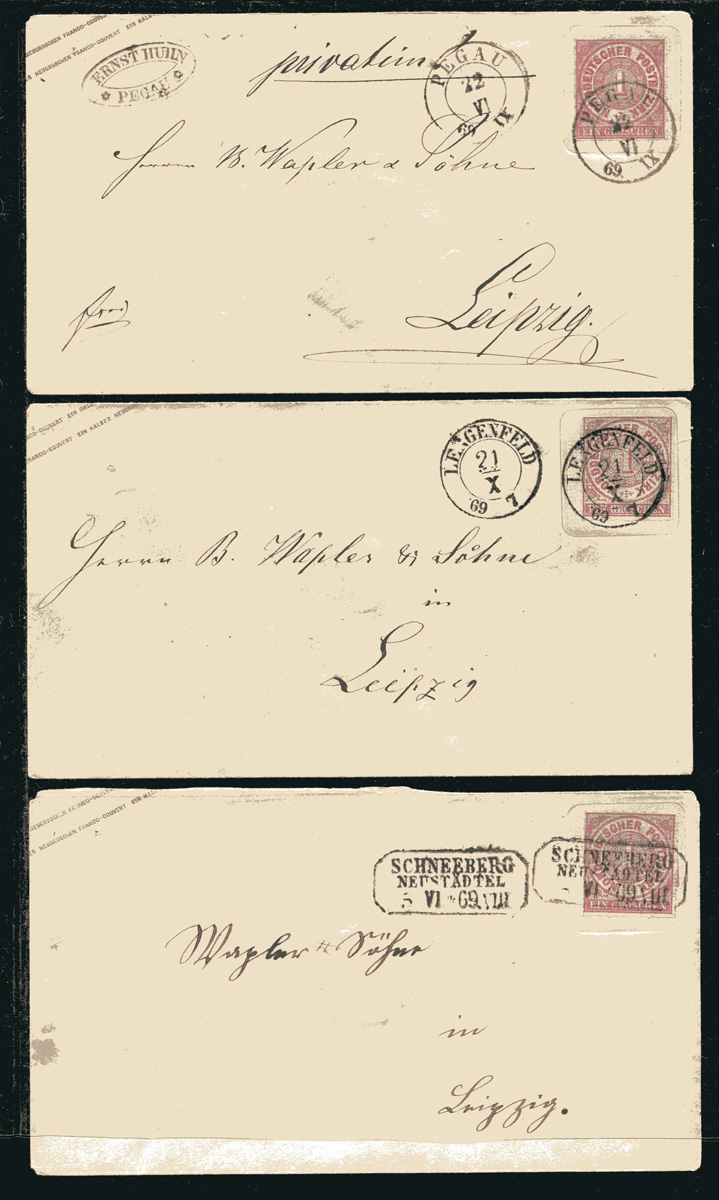 NEUGROSCHEN FRANCO-COUVERT EIN HALBER
NEUGROSCHEN FRANCO-COUVERT
ERNST HUHN
PEGAU
privatim
PEGAU
22
VI
69 IX
DEUTSCHER POSTBEZIRK
1
EIN GROSCHEN
PEGAU
22
VI
69. IX
Herren B. Wapler & Söhne
Leipzig.
frei
FRANCO-COUVERT EIN HALBER NEUGROSCHEN
LENGENFELD
21
X
69 7
LENGENFELD
21
X
69 7
Herrn B. Wapler & Söhne
in
Leipzig
NEUGROSCHEN FRANCO-COUVERT EIN HALBER
NEUGROSCHEN FRANCO-COUVERT
SCHNEEBERG
NEUSTÄDTEL
5 VI 69 VIII
SCHNEEBERG
NEUSTÄDTEL
5 VI 69 VIII
EIN GROSCHEN
Wapler & Söhne
in
Leipzig.